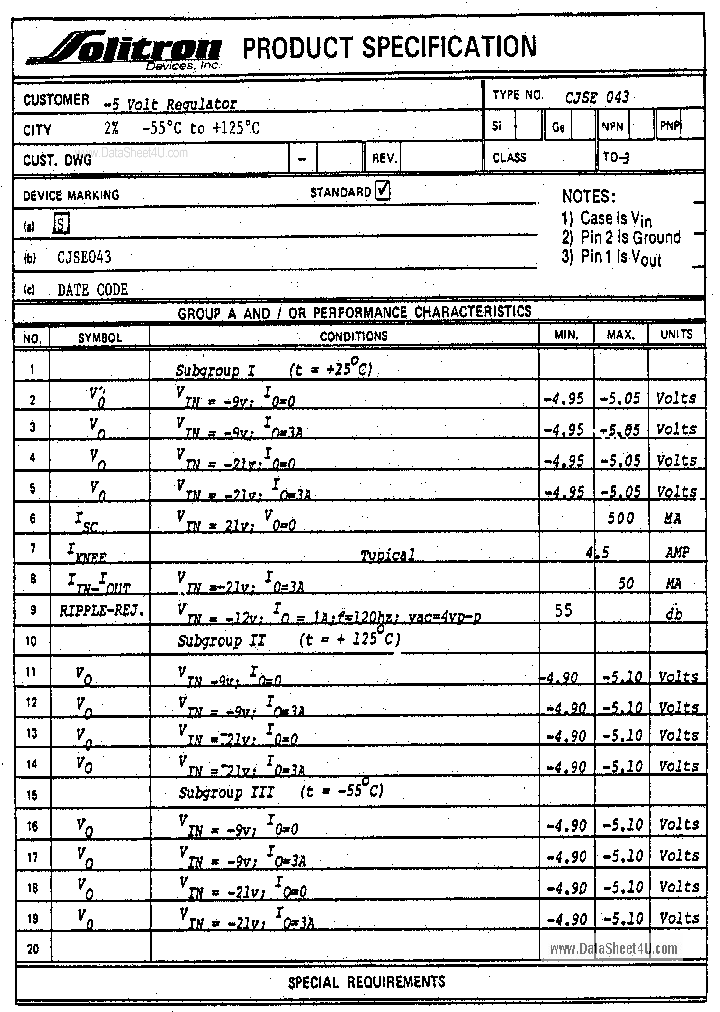 Solitron Devices, Inc. PRODUCT SPECIFICATION
CUSTOMER -5 Volt Regulator TYPE NO. CJSE 043
CITY 2% -55°C to +125°C Si Ge NPN PNP
www.DataSheet4U.com
CUST. DWG - REV. CLASS TO-3
DEVICE MARKING STANDARD ☑ NOTES:
(a) S 1) Case Is Vin
2) Pin 2 Is Ground
(b) CJSE043 3) Pin 1 Is Vout
(c) DATE CODE
GROUP A AND / OR PERFORMANCE CHARACTERISTICS
NO. SYMBOL CONDITIONS MIN. MAX. UNITS
1 Subgroup I (t = +25°C)
2 VO VIN = -9v; IO=0 -4.95 -5.05 Volts
3 VO VIN = -9v; IO=3A -4.95 -5.05 Volts
4 VO VIN = -21v; IO=0 -4.95 -5.05 Volts
5 VO VIN = -21v; IO=3A -4.95 -5.05 Volts
6 ISC VIN = 21v; VO=0 500 MA
7 IKNEE Typical 4.5 AMP
8 IIN-IOUT VIN =-21v; IO=3A 50 MA
9 RIPPLE-REJ. VIN = -12v; IO = 1A;f=120hz; vac=4vp-p 55 db
10 Subgroup II (t = + 125°C)
11 VO VIN -9v; IO=0 -4.90 -5.10 Volts
12 VO VIN = -9v; IO=3A -4.90 -5.10 Volts
13 VO VIN =-21v; IO=0 -4.90 -5.10 Volts
14 VO VIN =-21v; IO=3A -4.90 -5.10 Volts
15 Subgroup III (t = -55°C)
16 VO VIN = -9v; IO=0 -4.90 -5.10 Volts
17 VO VIN = -9v; IO=3A -4.90 -5.10 Volts
18 VO VIN = -21v; IO=0 -4.90 -5.10 Volts
19 VO VIN = -21v; IO=3A -4.90 -5.10 Volts
20 www.DataSheet4U.com
SPECIAL REQUIREMENTS